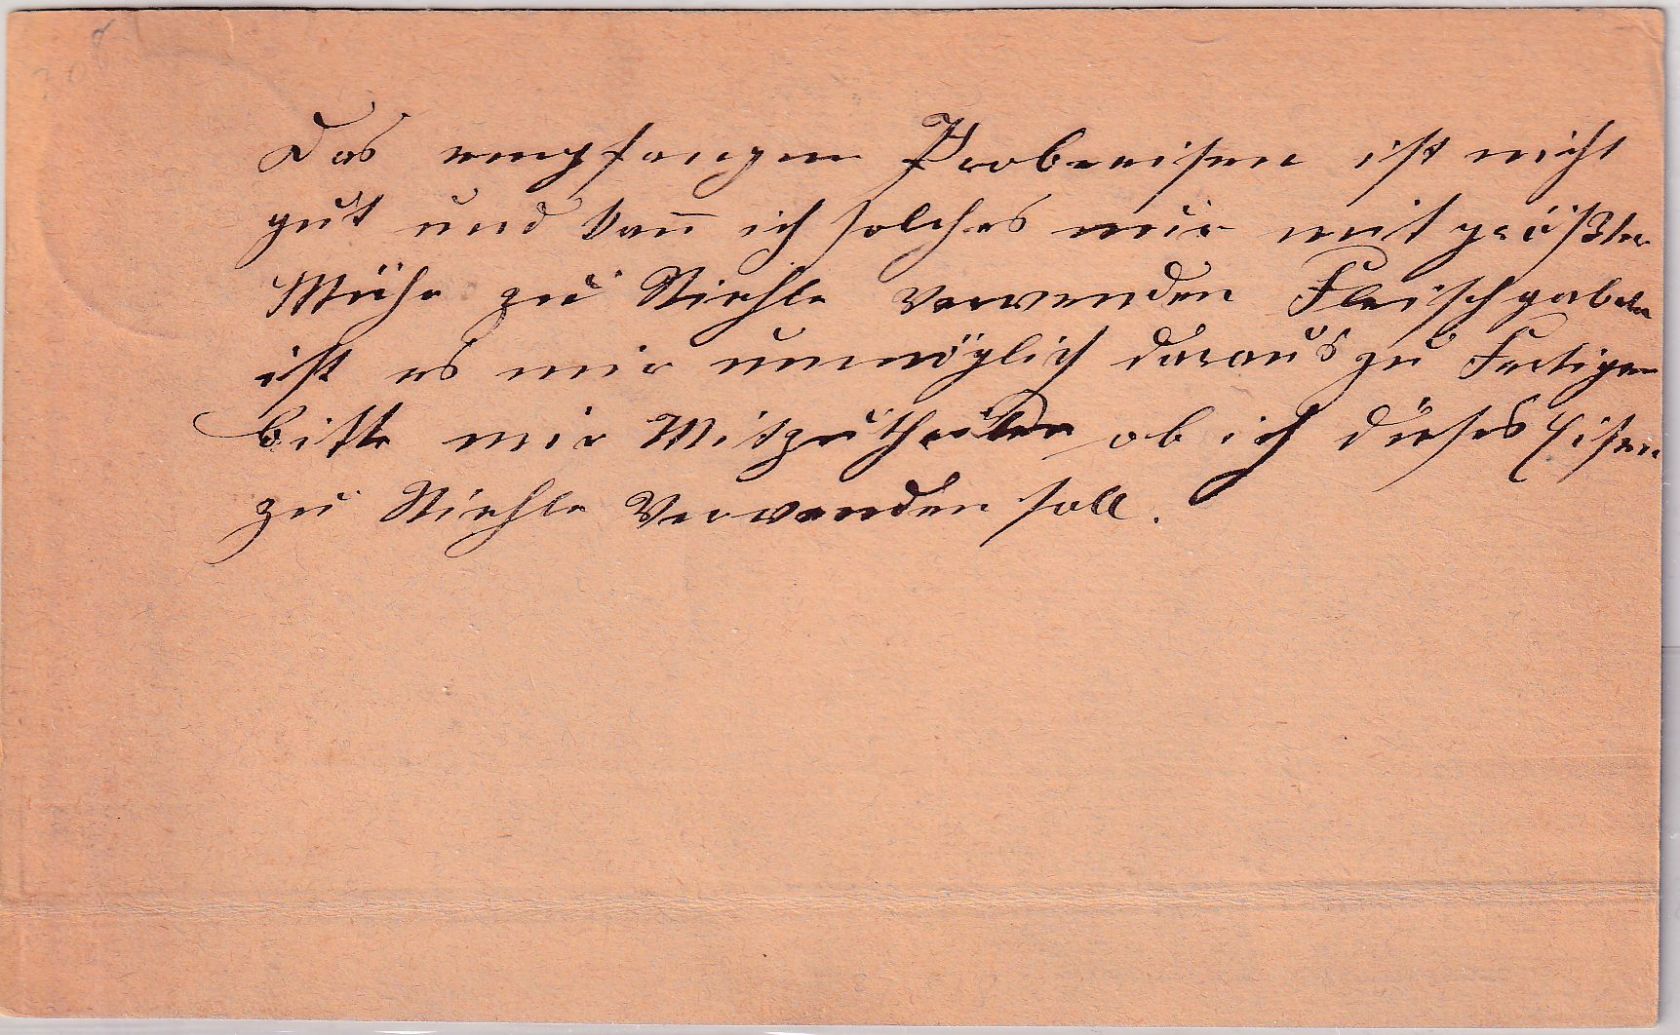 Das empfangen Probeeisen ist nicht
gut und kan̄ ich solches nur mit größter
Mühe zu Stiehle verwenden Fleischgabeln
ist es mir unmöglich daraus zu Fertigen
bitte mir Mitzutheilen ob ich dieses Eisen
zu Stiehle Verwenden soll.